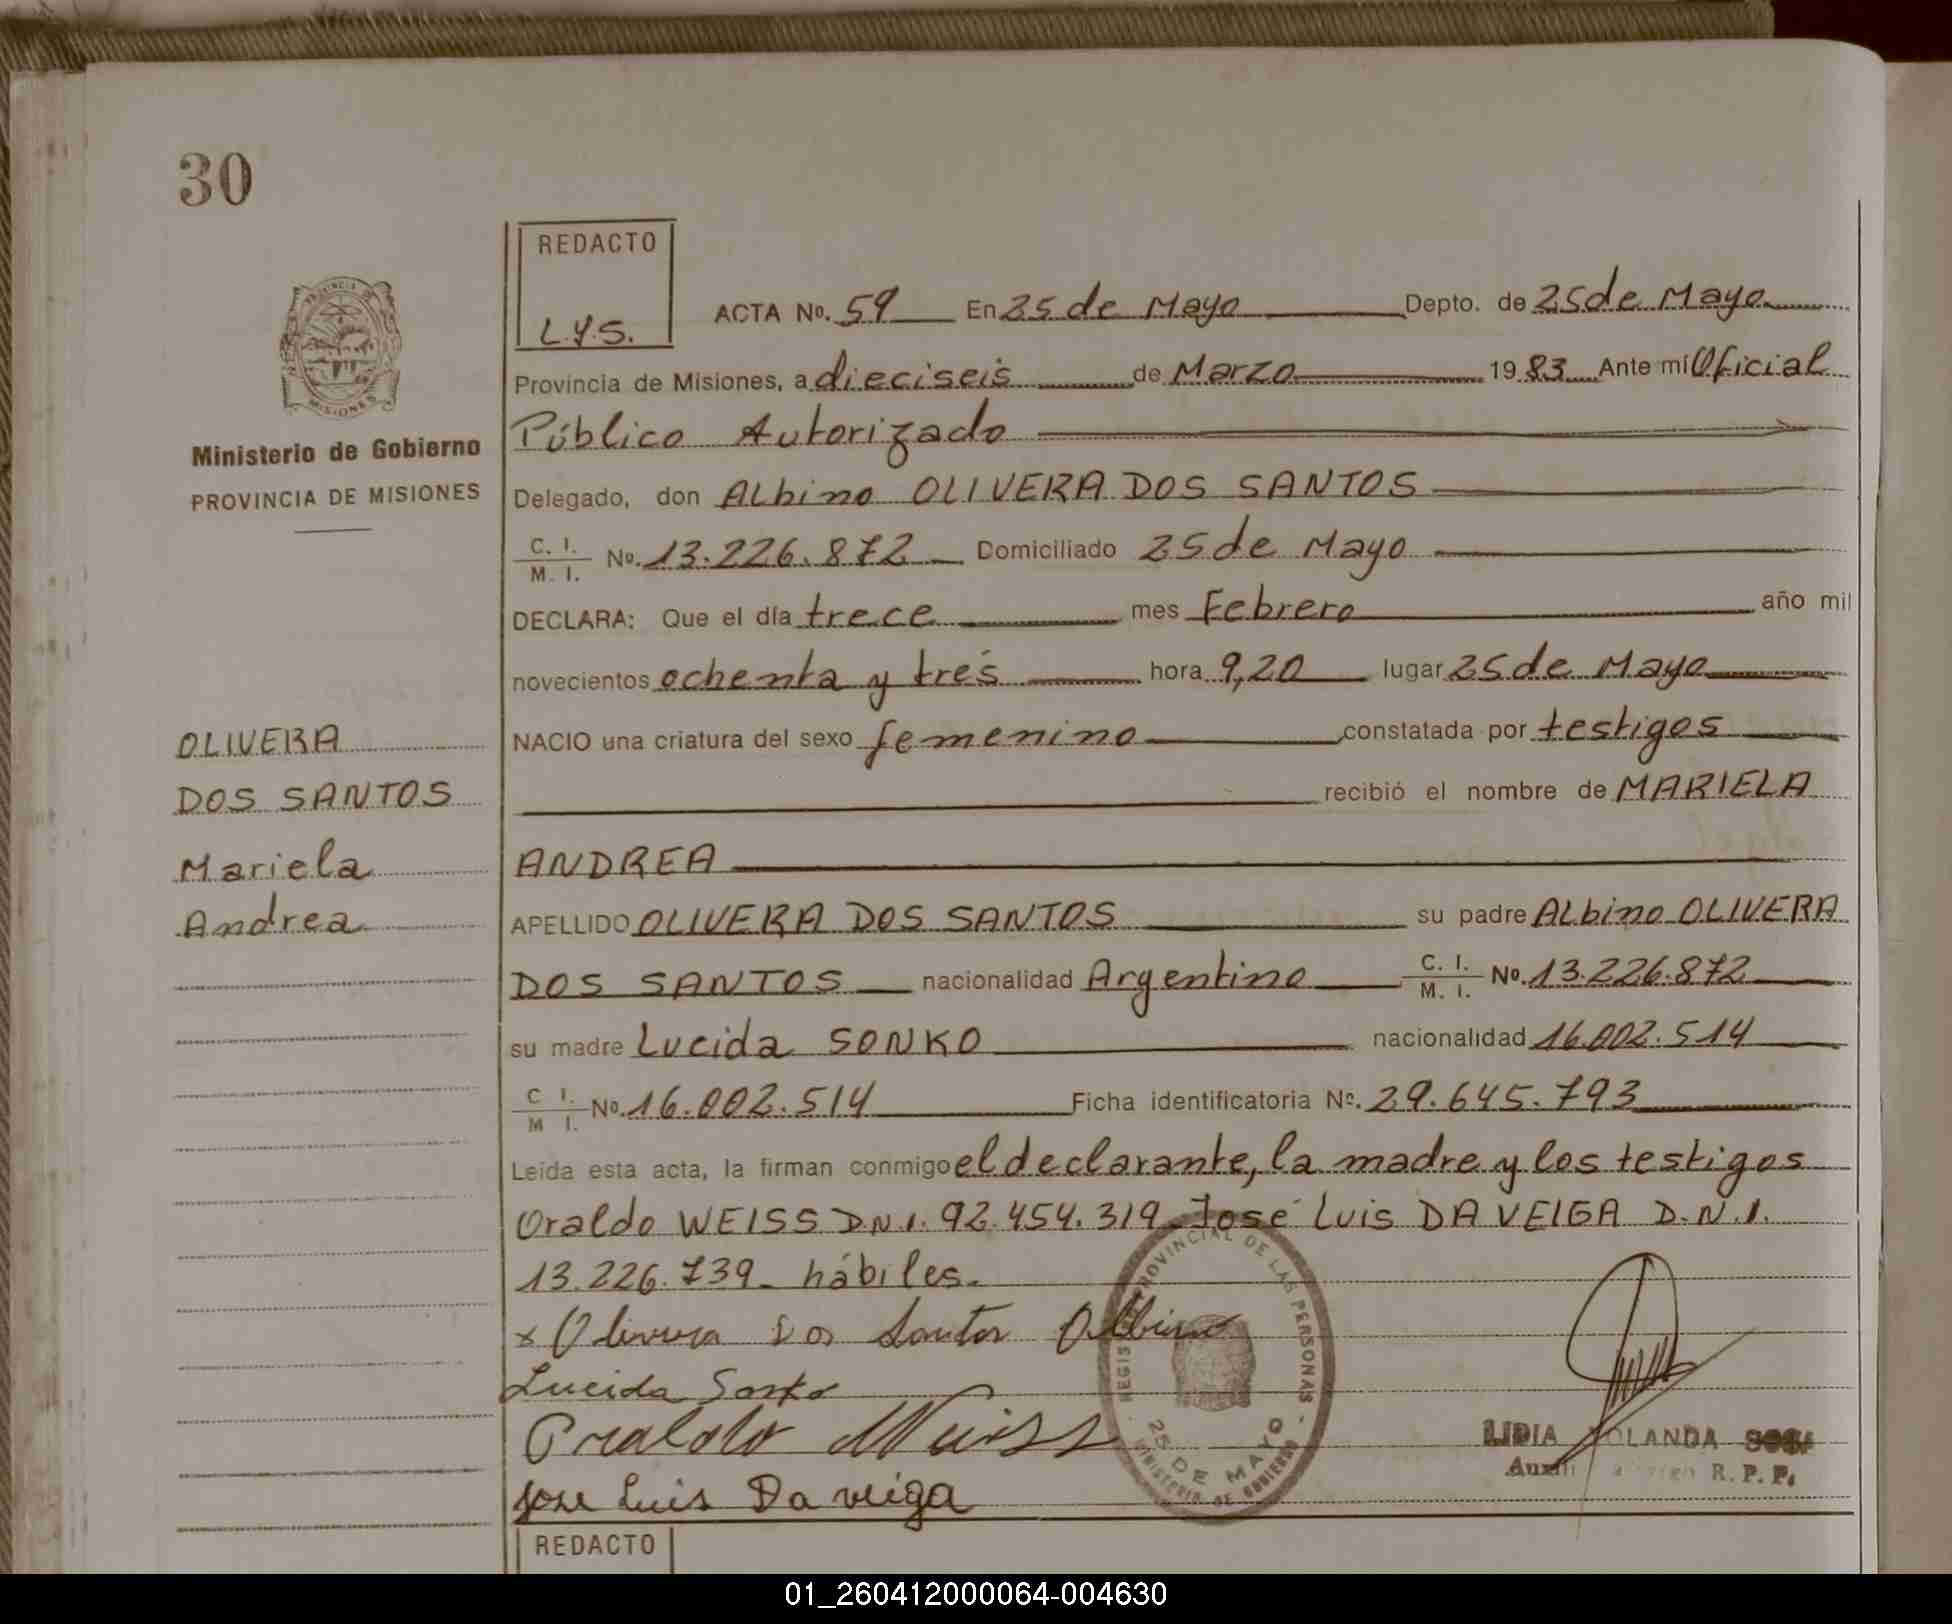 30
REDACTO
L.Y.S.
PROVINCIA DE
MISIONES
Ministerio de Gobierno
PROVINCIA DE MISIONES
ACTA No. 59 En 25 de Mayo Depto. de 25 de Mayo
Provincia de Misiones, a dieciseis de Marzo 1983 Ante mí Oficial
Público Autorizado
Delegado, don Albino OLIVERA DOS SANTOS
C. I. / M. I. No. 13.226.872 Domiciliado 25 de Mayo
DECLARA: Que el día trece mes Febrero año mil
novecientos ochenta y trés hora 9,20 lugar 25 de Mayo
NACIO una criatura del sexo femenino constatada por testigos
recibió el nombre de MARIELA
ANDREA
APELLIDO OLIVERA DOS SANTOS su padre Albino OLIVERA
DOS SANTOS nacionalidad Argentino C. I. / M. I. No. 13.226.872
su madre Lucida SONKO nacionalidad 16.002.514
C I. / M I. No. 16.002.514 Ficha identificatoria No. 29.645.793
Leída esta acta, la firman conmigo el declarante, la madre y los testigos
Oraldo WEISS D.N.I. 92.454.319 José Luis DA VEIGA D.N.I.
13.226.739- hábiles.
OLIVERA
DOS SANTOS
Mariela
Andrea
x Olivera Dos Santos Albino
Lucida Sonko
Oraldo Weiss
Jose Luis Da veiga
REGISTRO PROVINCIAL DE LAS PERSONAS
25 DE MAYO
MINISTERIO DE GOBIERNO
LIDIA YOLANDA SOSA
R. P. P.
REDACTO
01_260412000064-004630